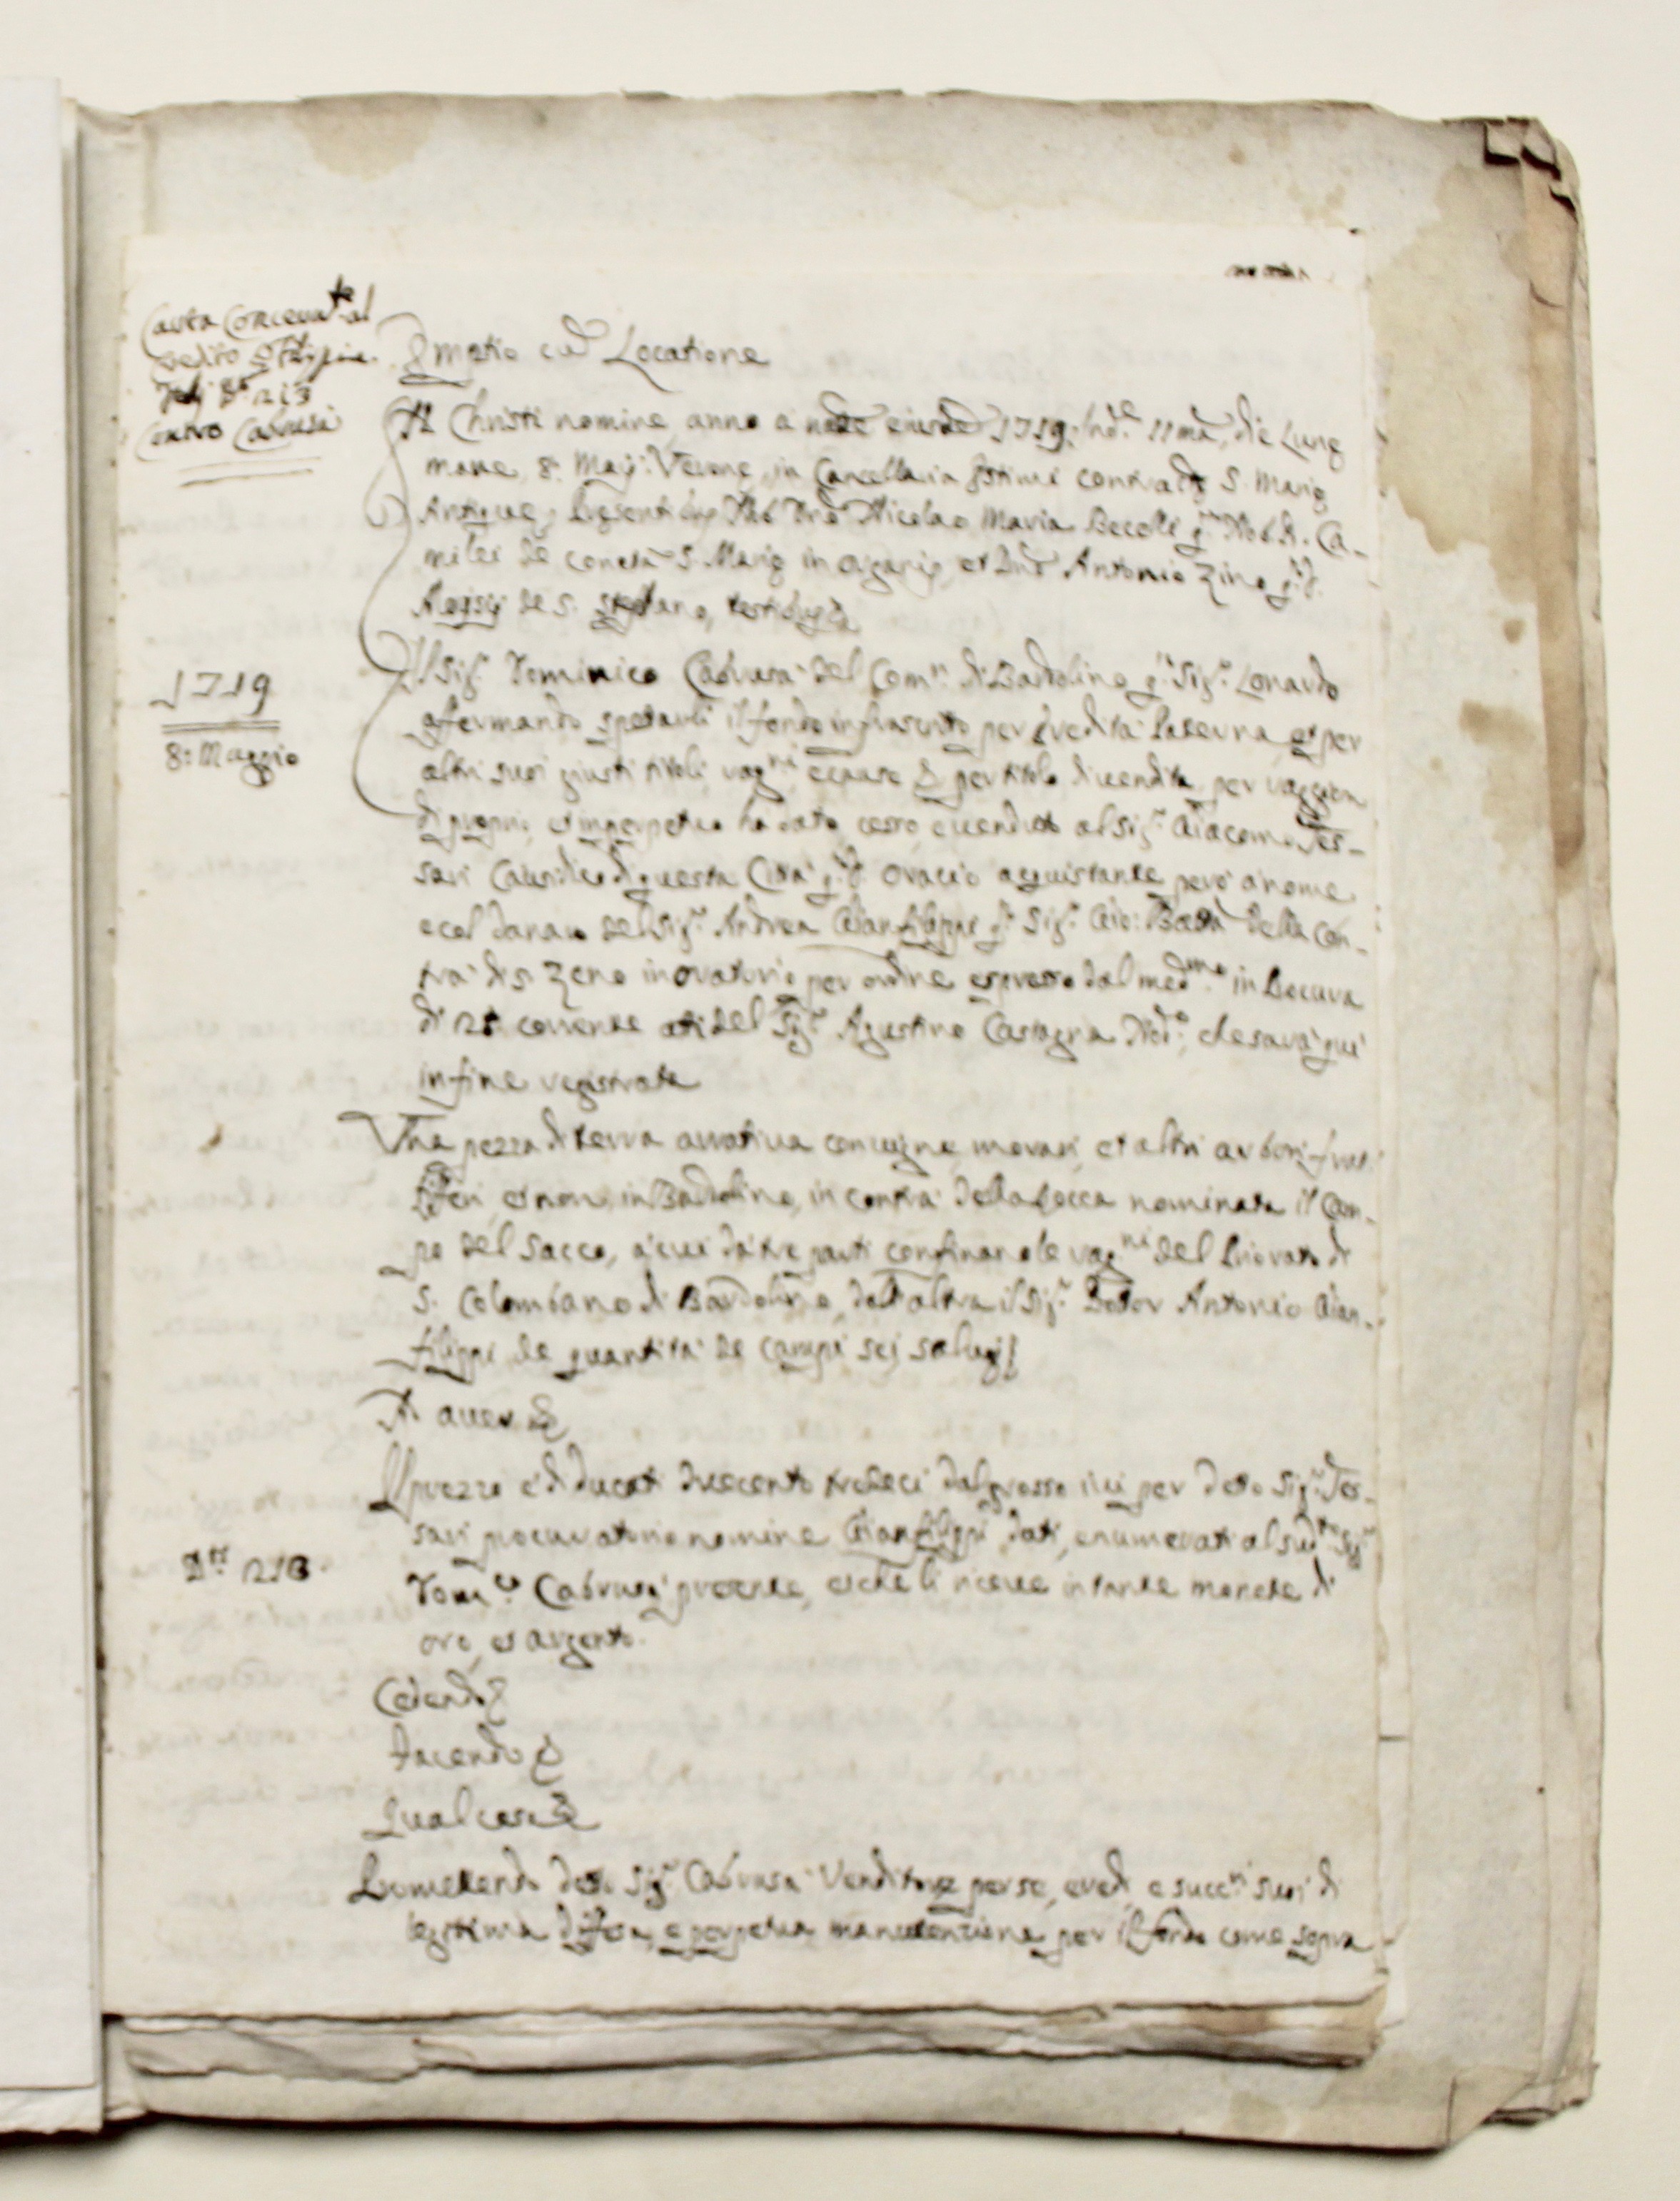 Carta Concern.te al
Contro Cabrusà
Emptio cũ Locatione
In Christi nomine, anno a 1719. Ind.e 11ma, die Lune
mane, 8. Maij. Verone, in Cancellaria Estimi S. Marie
Antique, presentibus Nicolao Maria Becelli q. Nob. D. Ca-
milei de S. Marie in et Antonio Zino q.
de S. Stefano, testibus
1719
8: Maggio
Il Sig.r Dominico Cabrusà del Com.n di Bardolino q. Sig.r Lonardo
afermando il fondo infrascritto per eredità Paterna, et per
altri suoi giusti titoli, rag.ni e cause & per titolo di vendita, per
di proprio, et in perpetuo hà dato, cesso, e venduto al Sig.r Giacomo Tes-
sari Causidico di questa Città q. Oracio acquistante però à nome
e col danaro del Sig.r Andrea Gianfilippi q. Sig.r Gio: Batta della Con-
trà di S. Zeno in oratorio per ordine espresso dal med.mo in Procura
di corrente atti del Sig.r Agustino Castagna Nod.o, che sarà qui
in fine registrata
Una pezza di terra arrativa con vigne, morari, et altri arbori frut-
iferi, et non, in Bardolino, in contrà della Rocca nominata il Cam-
po del Sacco, à cui da tre parti confinano le rag.ni del Priorato di
S. Colombano di Bardolino, dall'altra il Sig.r Dotor Antonio Gian-
filippi de quantità de campi sei
Ad aver &
Il prezzo è di ducati duecento tredeci dal grosso ivi per deto Sig.r Tes-
sari procuratorio nomine Gianfilippi dati, e numerati al sud.to Sig.r
D.ti 213.
Dom.co Cabrusà presente, et che li riceve in tante monete di
oro, et argento.
Cedendo &
Facendo &
Qual cosa &
Prometendo deto Sig.r Cabrusà Venditore per se, eredi, e succ.ri suoi di
legitima difesa, e perpetua manutenzione per il fondo come sopra